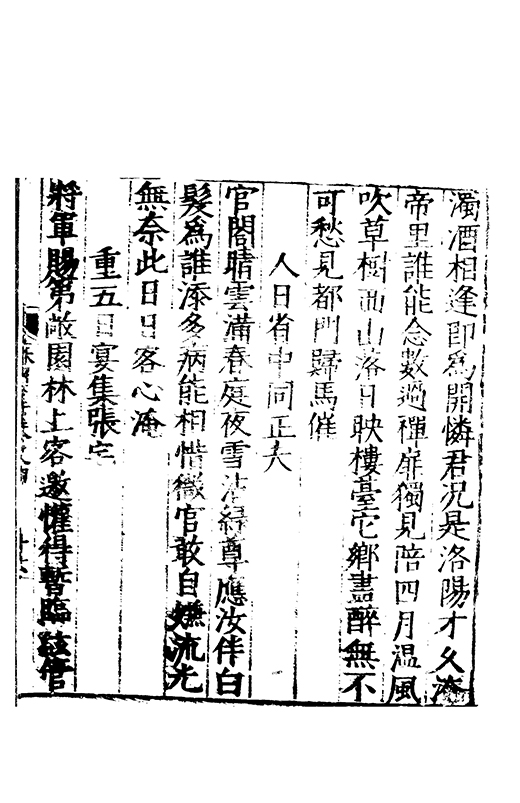 濁酒相逢即為開憐君况是洛陽才久淹
帝里誰能念數過禪扉獨見陪四月温風
吹草樹西山落日映樓臺它鄉盡醉無不
可愁見都門歸馬催
人日省中同正夫
官閣晴雲滿春庭夜雪沾緑尊應汝伴白
髮為誰添多病能相惜微官敢自嫌流光
無奈此日日客心淹
重五日宴集張宅
將軍賜第敞園林上客邀懽得暫臨